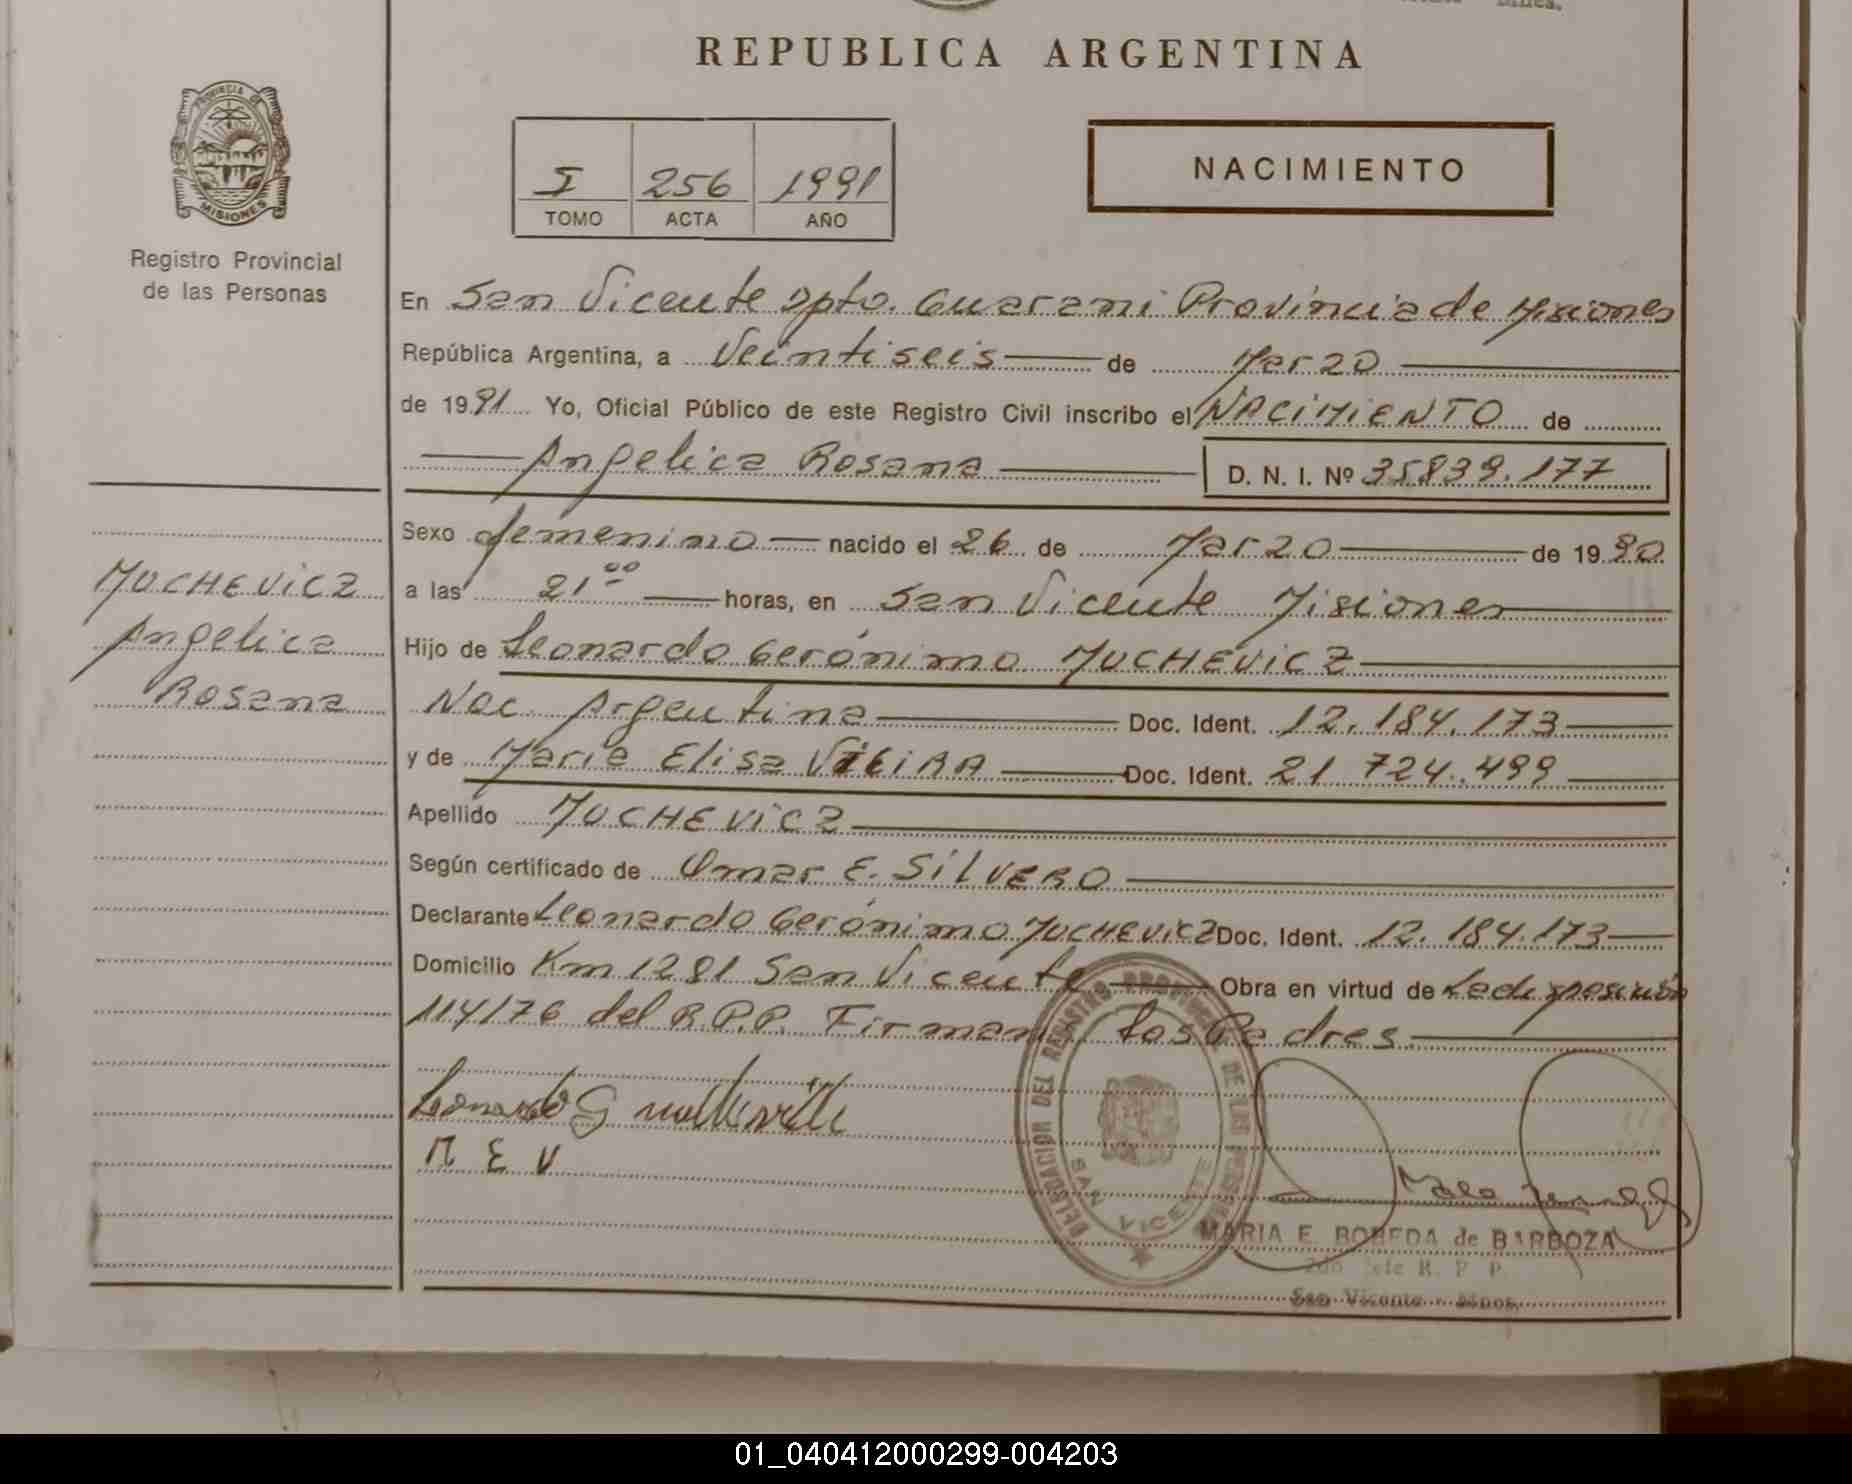 REPUBLICA ARGENTINA
PROVINCIA DE
MISIONES
Registro Provincial
de las Personas
I 256 1991
TOMO ACTA AÑO
NACIMIENTO
En San Vicente Dpto. Guarani Provincia de Misiones
República Argentina, a Veintiseis de Marzo
de 1991 Yo, Oficial Público de este Registro Civil inscribo el NACIMIENTO de
Angelica Rosana D. N. I. Nº 35839.177
Sexo femenino nacido el 26 de Marzo de 1990
a las 21 00 horas, en San Vicente Misiones
Hijo de Leonardo Gerónimo MUCHEVICZ
Nac. Argentina Doc. Ident. 12.184.173
y de Maria Elisa VIEIRA Doc. Ident. 21 724.499
Apellido MUCHEVICZ
Según certificado de Omar E. SILVERO
Declarante Leonardo Gerónimo MUCHEVICZ Doc. Ident. 12.184.173
Domicilio Km 1281 San Vicente Obra en virtud de La disposición
114/76 del R.P.P. Firman los Padres
MUCHEVICZ
Angelica
Rosana
Leonardo G
M E V
DELEGACION DEL REGISTRO PROVINCIAL DE LAS PERSONAS
SAN VICENTE
MARIA E. BOBEDA de BARBOZA
2do Jefe R. P. P.
San Vicente - Mnes.
01_040412000299-004203